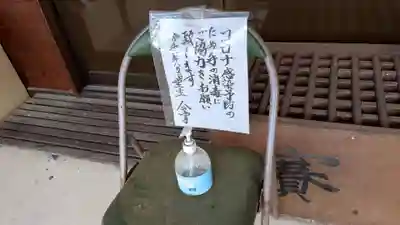 コロナ感染予防の
ため手の消毒に
ご協力をお願い
致します
賽